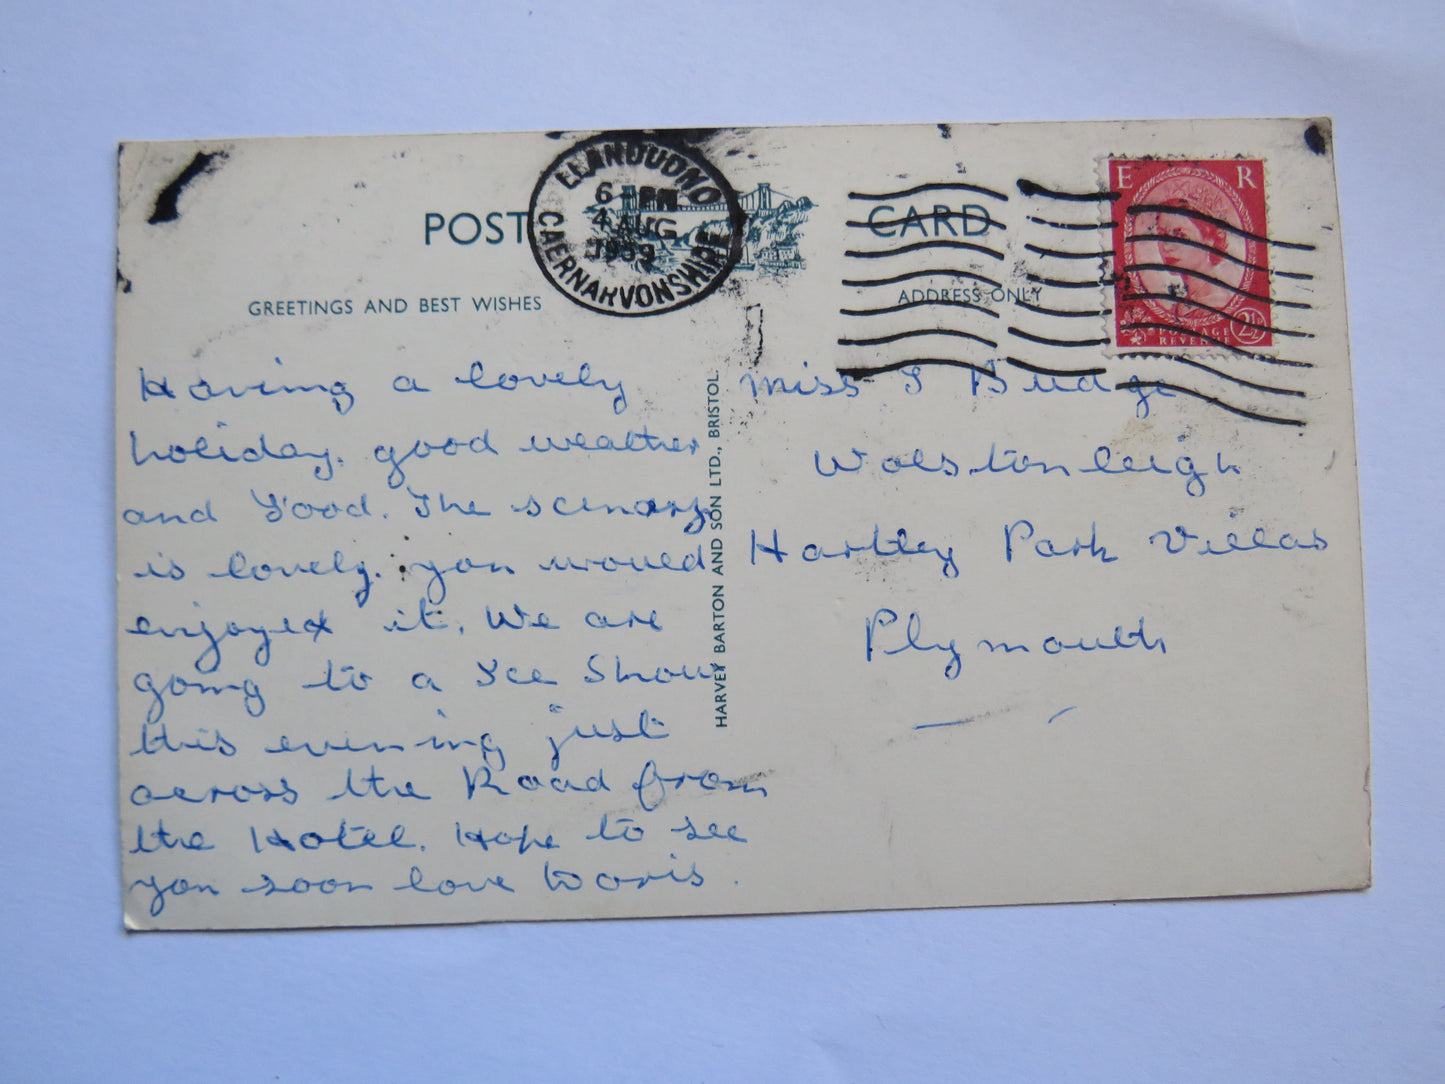 POST CARD
LLANDUDNO
6 PM
4 AUG
1959
CAERNARVONSHIRE
E R
POSTAGE
REVENUE
2½
GREETINGS AND BEST WISHES
ADDRESS ONLY
Having a lovely
holiday. good weather
and Food. The scenary
is lovely. you would
enjoyed it. We are
going to a Ice Show
this evening just
across the Road from
the Hotel. Hope to see
you soon love Doris.
HARVEY BARTON AND SON LTD., BRISTOL
Miss I Budge
Wolstonleigh
Hartley Park Villas
Plymouth